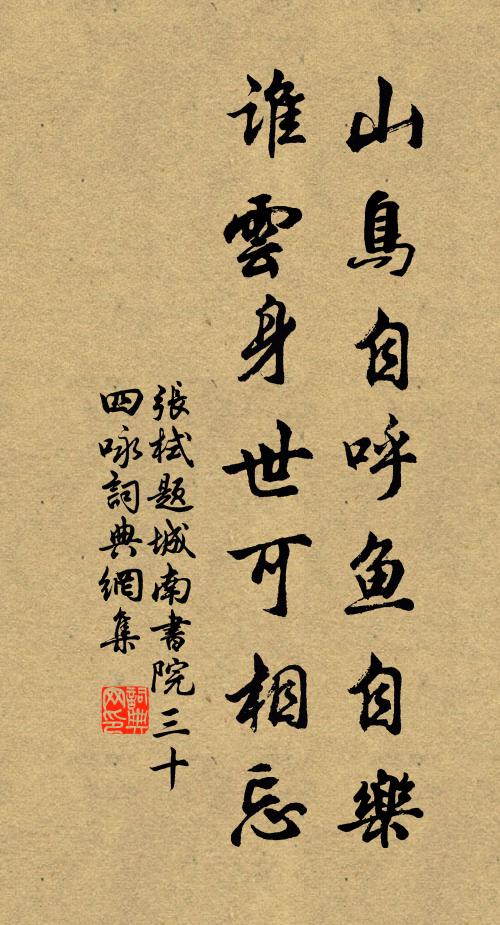 山鳥自呼鱼自樂
誰雲身世可相忘
張栻題城南書院三十
四咏詞典網集
詞典
网印